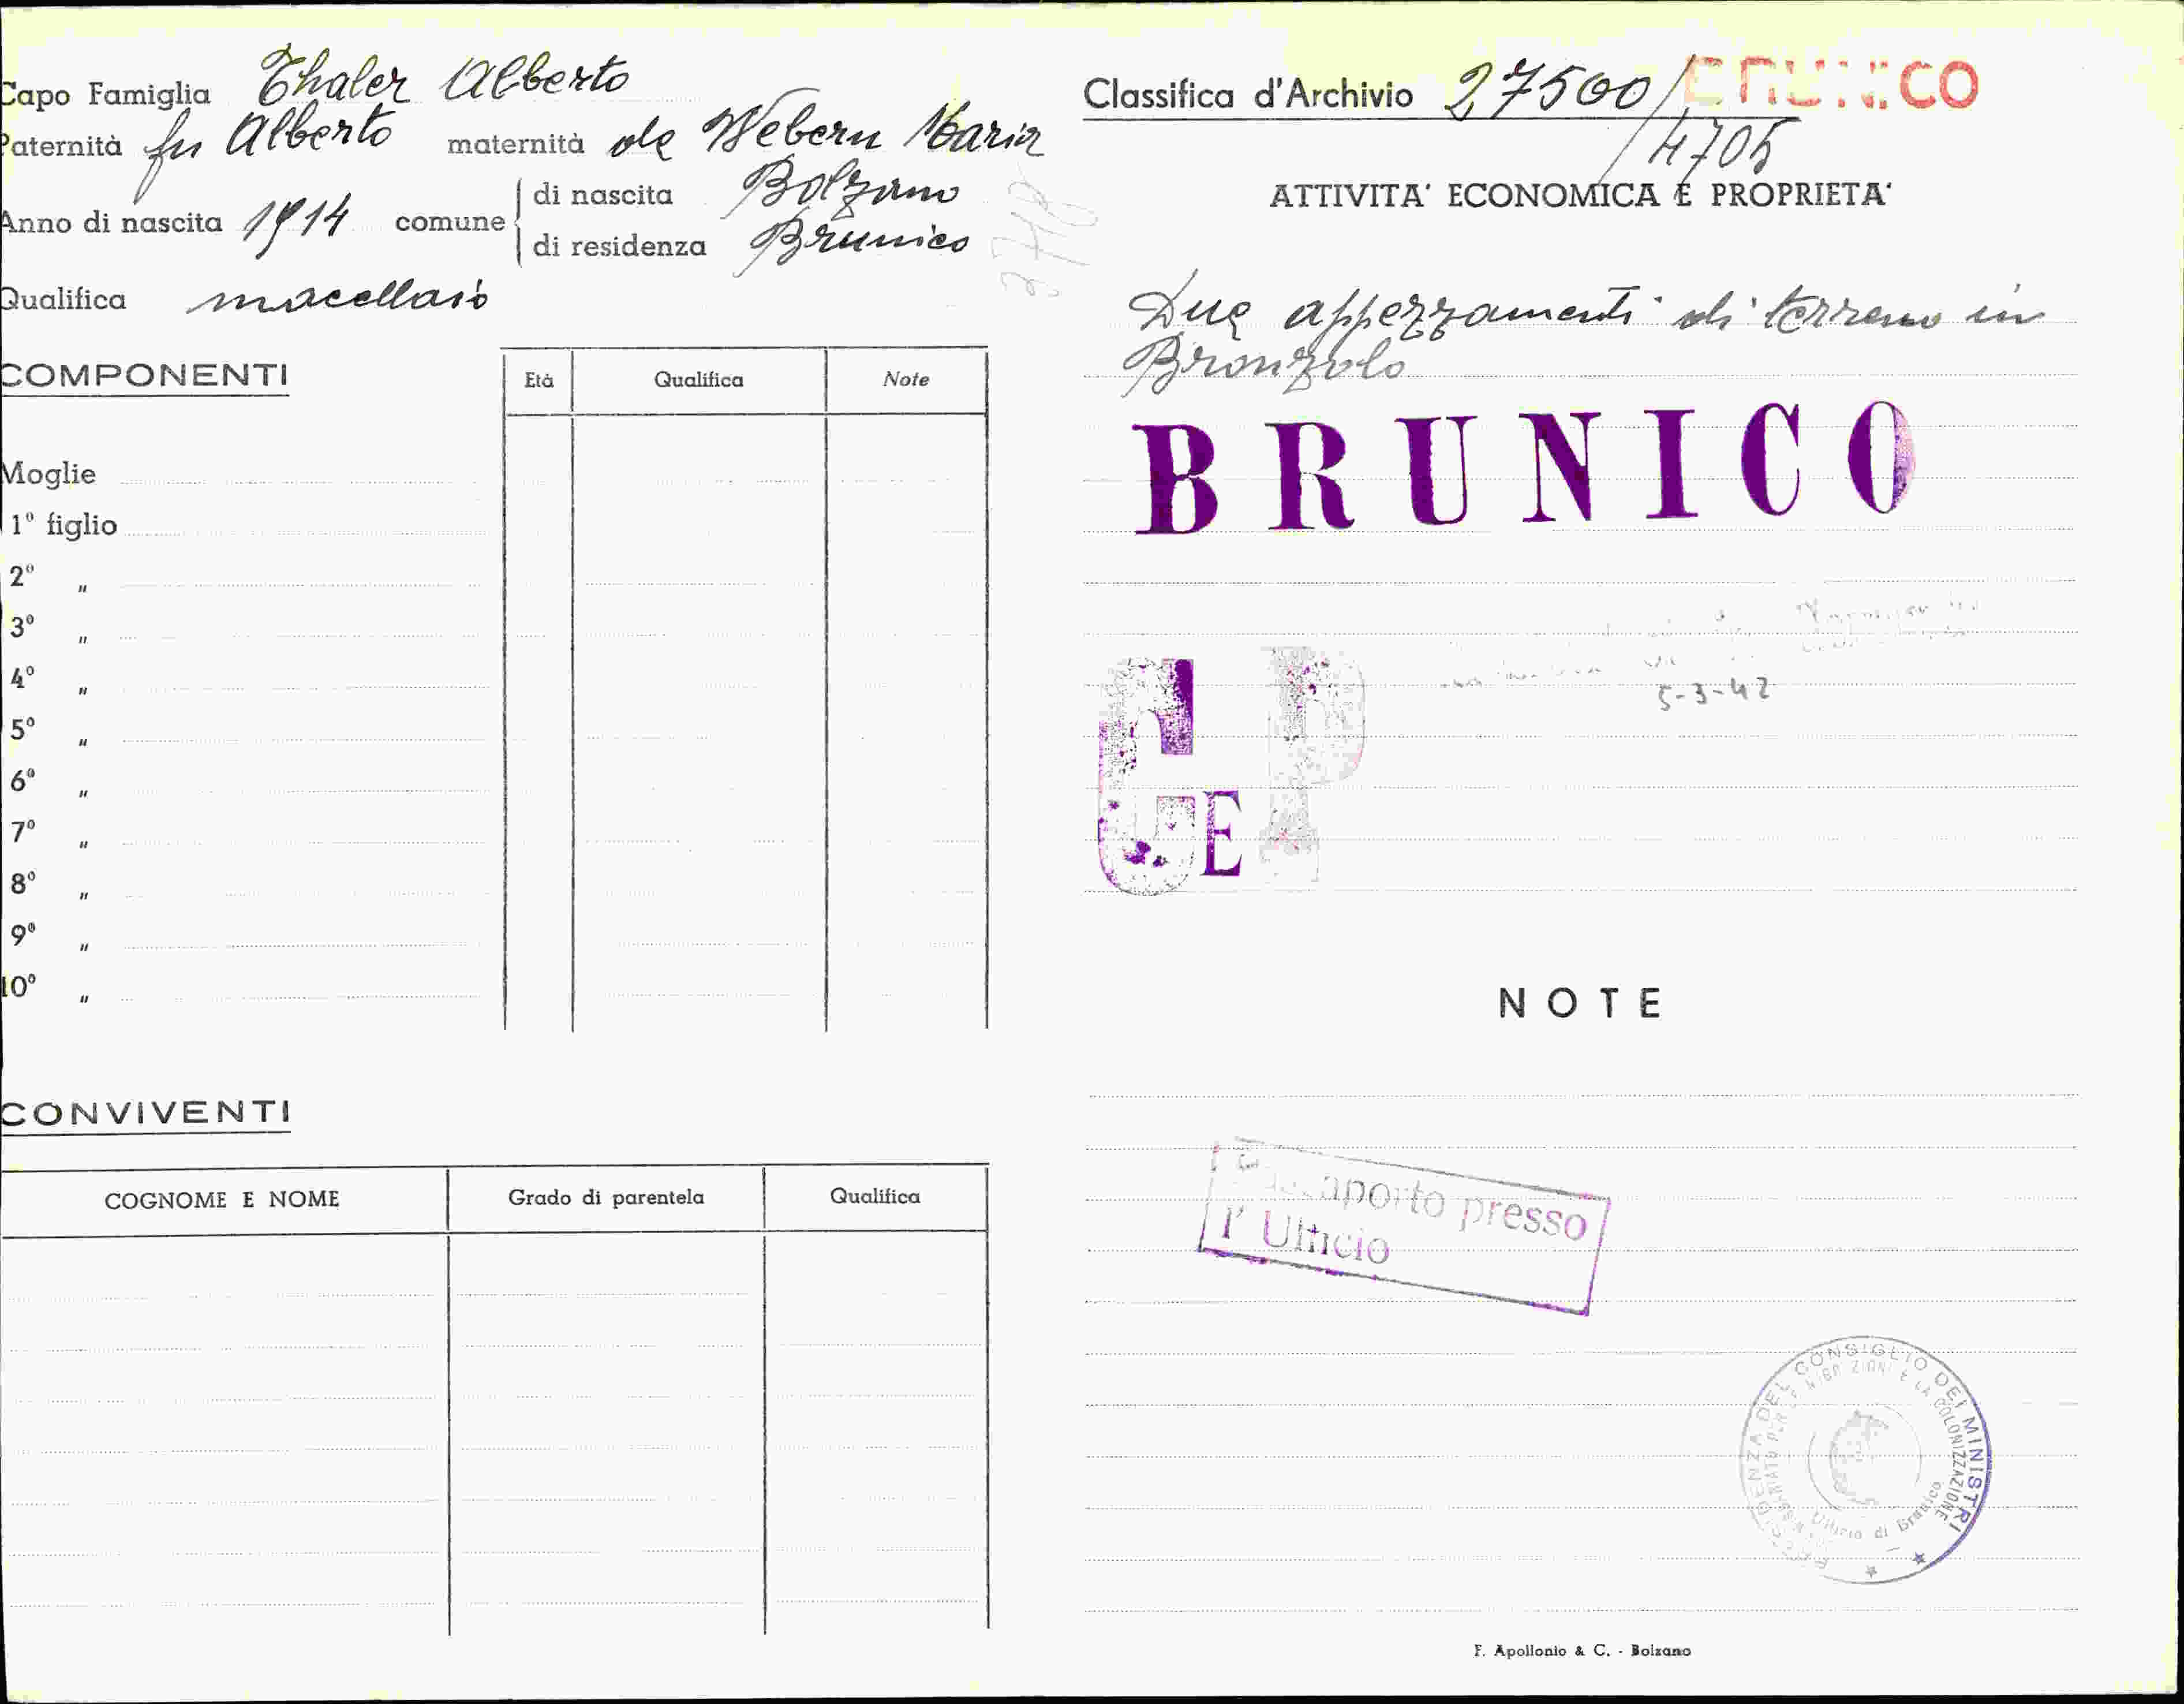 Capo Famiglia Thaler Alberto
Paternità fu Alberto maternità de Webern Maria
Anno di nascita 1914 comune di nascita Bolzano
di residenza Brunico
Qualifica macellaio
COMPONENTI
Età Qualifica Note
Moglie
1º figlio
2º "
3º "
4º "
5º "
6º "
7º "
8º "
9º "
10º "
CONVIVENTI
COGNOME E NOME Grado di parentela Qualifica
Classifica d'Archivio 27500/ BRUNICO
/4705
ATTIVITA' ECONOMICA E PROPRIETA'
Due appezzamenti di terreno in
Bronzolo
BRUNICO
5-3-42
E
NOTE
Passaporto presso
l'Ufficio
PRESIDENZA DEL CONSIGLIO DEI MINISTRI
MIGRAZIONI E LA COLONIZZAZIONE
Ufficio di Brunico
F. Apollonio & C. - Bolzano